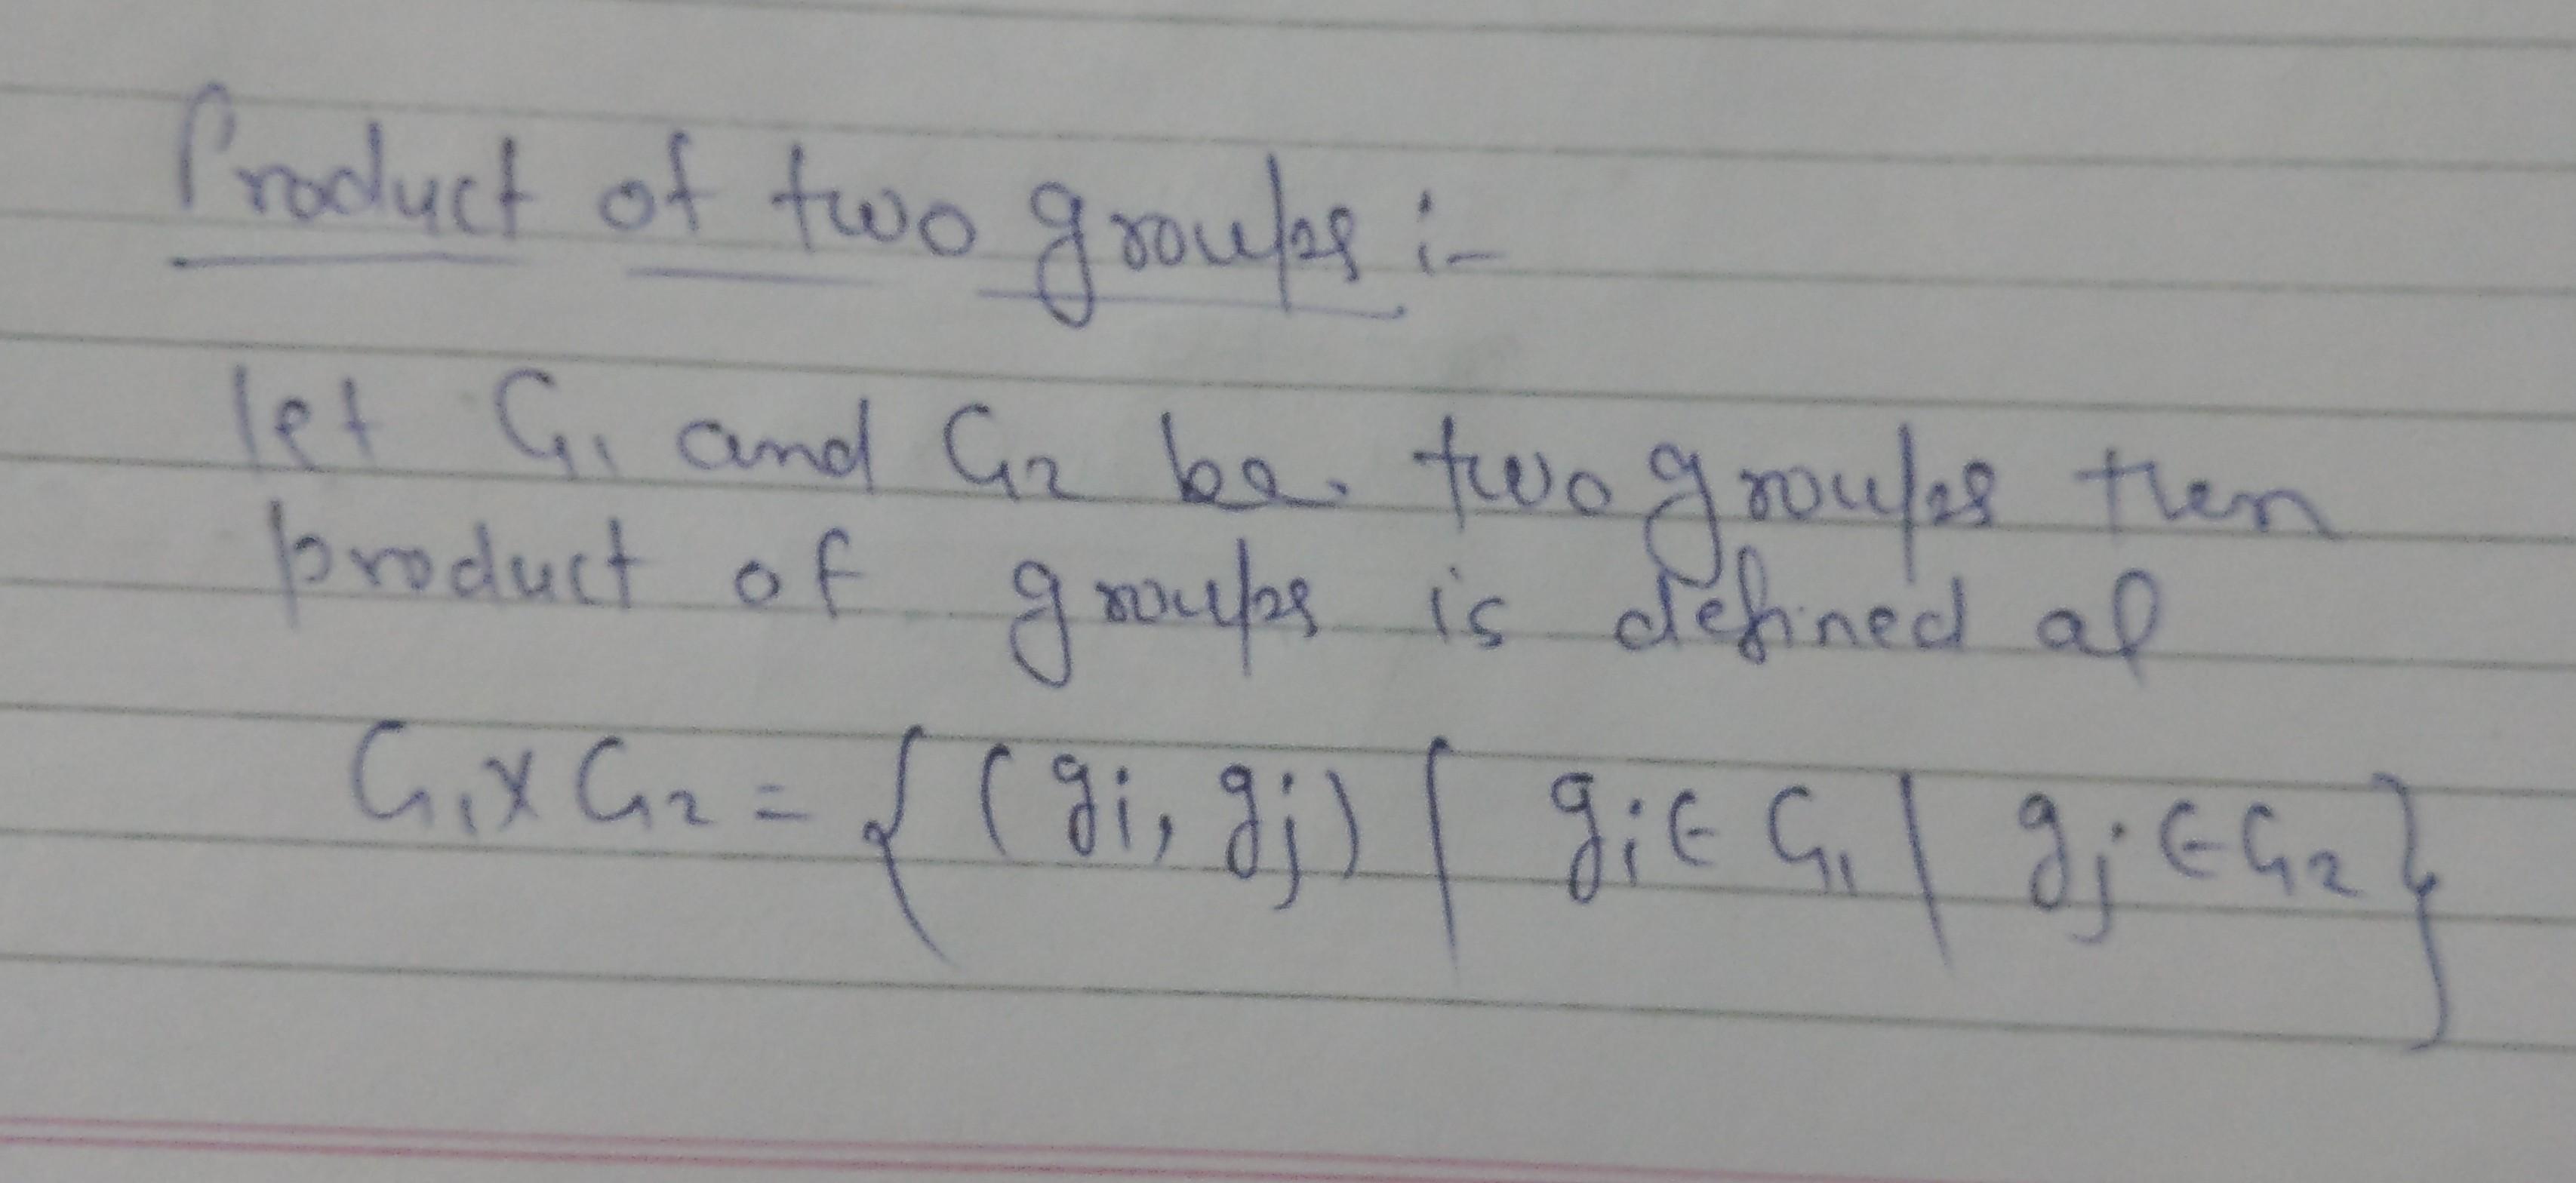 Product of two groups :-
let G1 and G2 be two groups then
product of groups is defined as
G1 x G2 = { (gi, gj) | gi ∈ G1 | gj ∈ G2 }